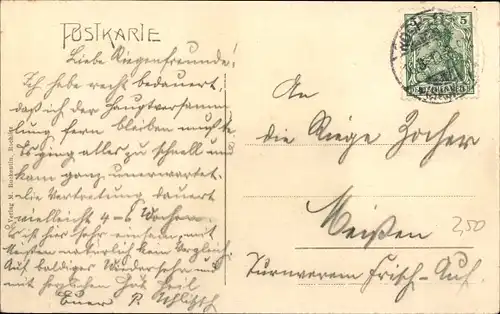 POSTKARTE
Liebe Riegenfreunde!
Ich habe recht bedauert,
daß ich der Hauptversamm
lung fern bleiben mußte.
Es ging alles zu schnell und
kam ganz unerwartet.
Die Vertretung dauert
vielleicht 4-6 Wochen.
Es ist hier sehr einsam, mit
Meißen natürlich kein Vergleich.
Auf baldiges Wiedersehn und
mit herzlichem Gut Heil
Euer P.
An
die Riege Zocher
Meißen
Turnverein Frisch-Auf.
2,50
5
Verlag M.